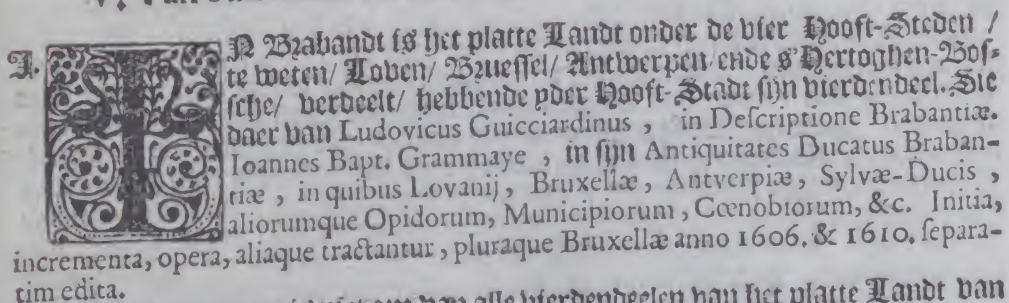 I. IN Brabandt is het platte Landt onder de vier Hooft-Steden /
te weten/ Loven/ Brueſſel/ Antwerpen/ ende s'Hertoghen-Boſ-
ſche/ verdeelt/ hebbende yder Hooft-Stadt ſijn vierdendeel. Sie
daer van Ludovicus Guicciardinus , in Deſcriptione Brabantiæ.
Ioannes Bapt. Grammaye , in ſijn Antiquitates Ducatus Braban-
tiæ , in quibus Lovanij , Bruxellæ , Antverpiæ , Sylvæ-Ducis ,
aliorumque Opidorum, Municipiorum , Cœnobiorum, &c. Initia,
incrementa, opera, aliaque tractantur , pluraque Bruxellæ anno 1606. & 1610. ſepara-
tim edita.
van alle vierdendeelen van het platte Landt van